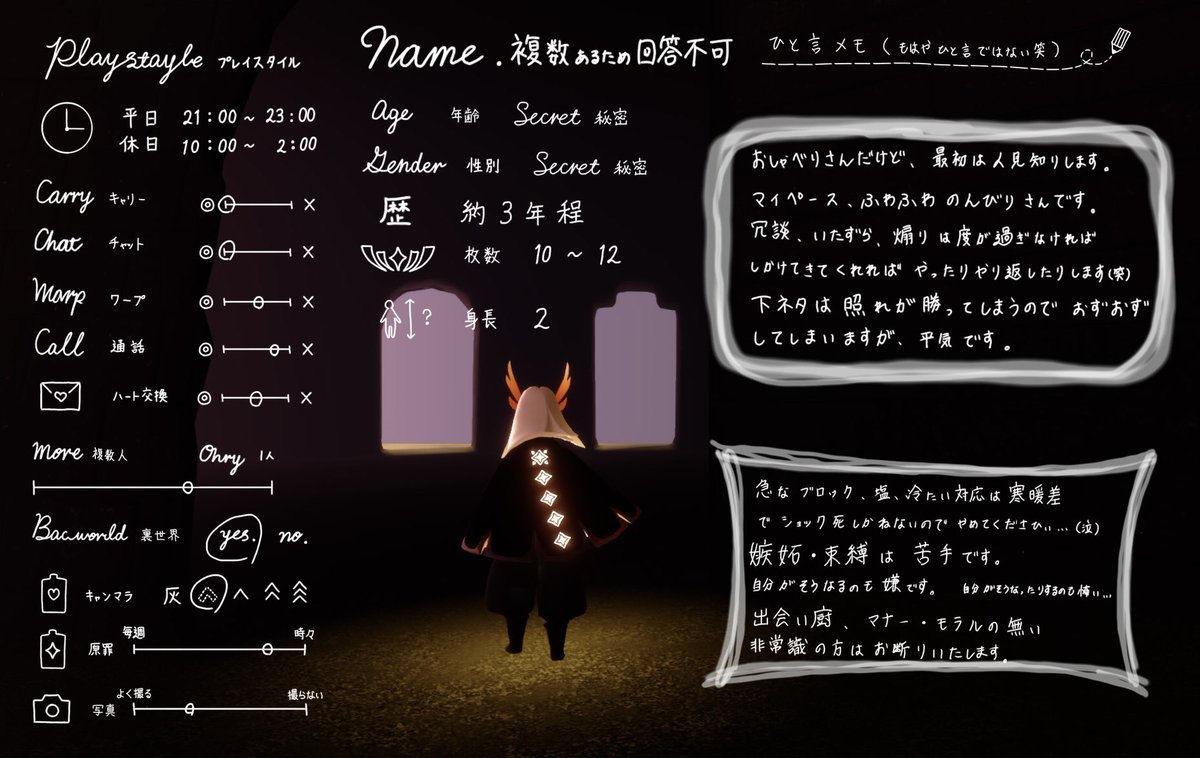 Playstayle プレイスタイル
平日 21:00~23:00
休日 10:00~ 2:00
Carry キャリー ◎ ×
Chat チャット ◎ ×
Marp ワープ ◎ ×
Call 通話 ◎ ×
ハート交換 ◎ ×
More 複数人 Ohry 1人
Bacworld 裏世界 yes. no.
キャンマラ 灰
原罪 毎週 時々
写真 よく撮る 撮らない
Name. 複数あるため回答不可
Age 年齢 Secret 秘密
Gender 性別 Secret 秘密
歴 約3年程
枚数 10 ~ 12
? 身長 2
ひと言メモ (もはやひと言ではない笑)
おしゃべりさんだけど、最初は人見知りします。
マイペース、ふわふわ のんびりさんです。
冗談、いたずら、煽りは度が過ぎなければ
しかけてきてくれれば やったりやり返したりします(笑)
下ネタは照れが勝ってしまうので おずおず
してしまいますが、平気です。
急なブロック、塩、冷たい対応は寒暖差
でショック死しかねないので やめてくださひぃ...(泣)
嫉妬・束縛は苦手です。
自分がそうなるのも嫌です。 自分がそうなったりするのも怖い...
出会い厨、マナー・モラルの無い
非常識の方はお断りいたします。